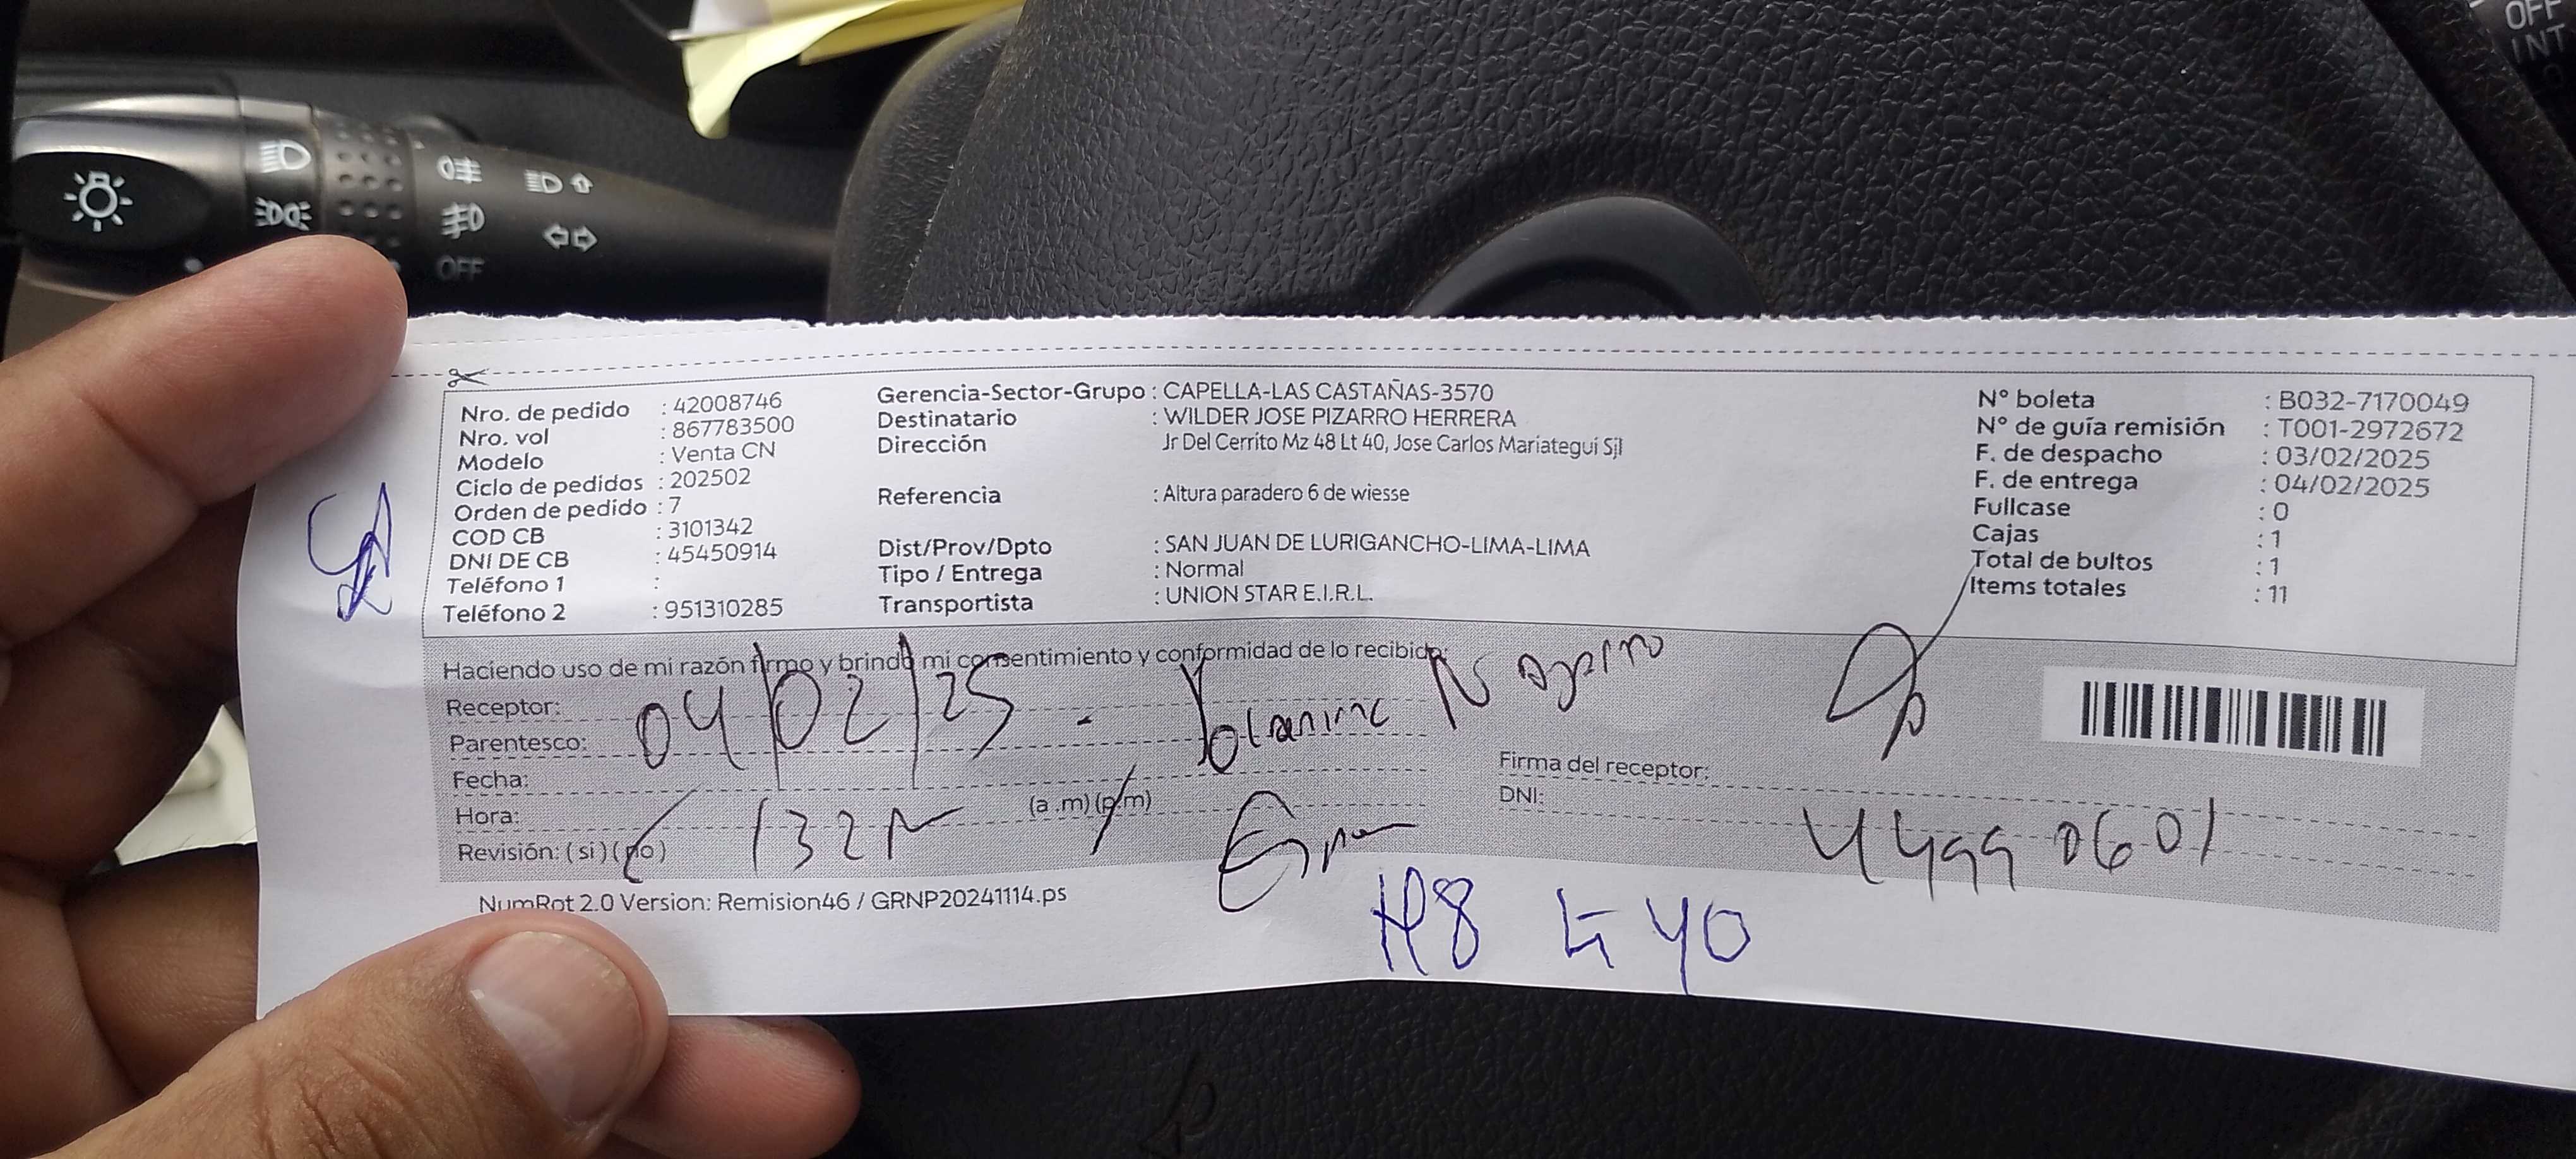 OFF
INT
OFF
Nro. de pedido : 42008746
Nro. vol : 867783500
Modelo : Venta CN
Ciclo de pedidos : 202502
Orden de pedido : 7
COD CB : 3101342
DNI DE CB : 45450914
Teléfono 1 :
Teléfono 2 : 951310285
Gerencia-Sector-Grupo : CAPELLA-LAS CASTAÑAS-3570
Destinatario : WILDER JOSE PIZARRO HERRERA
Dirección Jr Del Cerrito Mz 48 Lt 40, Jose Carlos Mariategui Sjl
Referencia : Altura paradero 6 de wiesse
Dist/Prov/Dpto : SAN JUAN DE LURIGANCHO-LIMA-LIMA
Tipo / Entrega : Normal
Transportista : UNION STAR E.I.R.L.
N° boleta : B032-7170049
N° de guía remisión : T001-2972672
F. de despacho : 03/02/2025
F. de entrega : 04/02/2025
Fullcase : 0
Cajas : 1
Total de bultos : 1
Items totales : 11
Haciendo uso de mi razón firmo y brindo mi consentimiento y conformidad de lo recibido:
Receptor:
Parentesco: 04/02/25
Fecha:
Hora: 132 (a .m) (p.m)
Revisión: ( si ) ( no )
Firma del receptor:
DNI: 44990601
NumRot 2.0 Version: Remision46 / GRNP20241114.ps
Lt 40